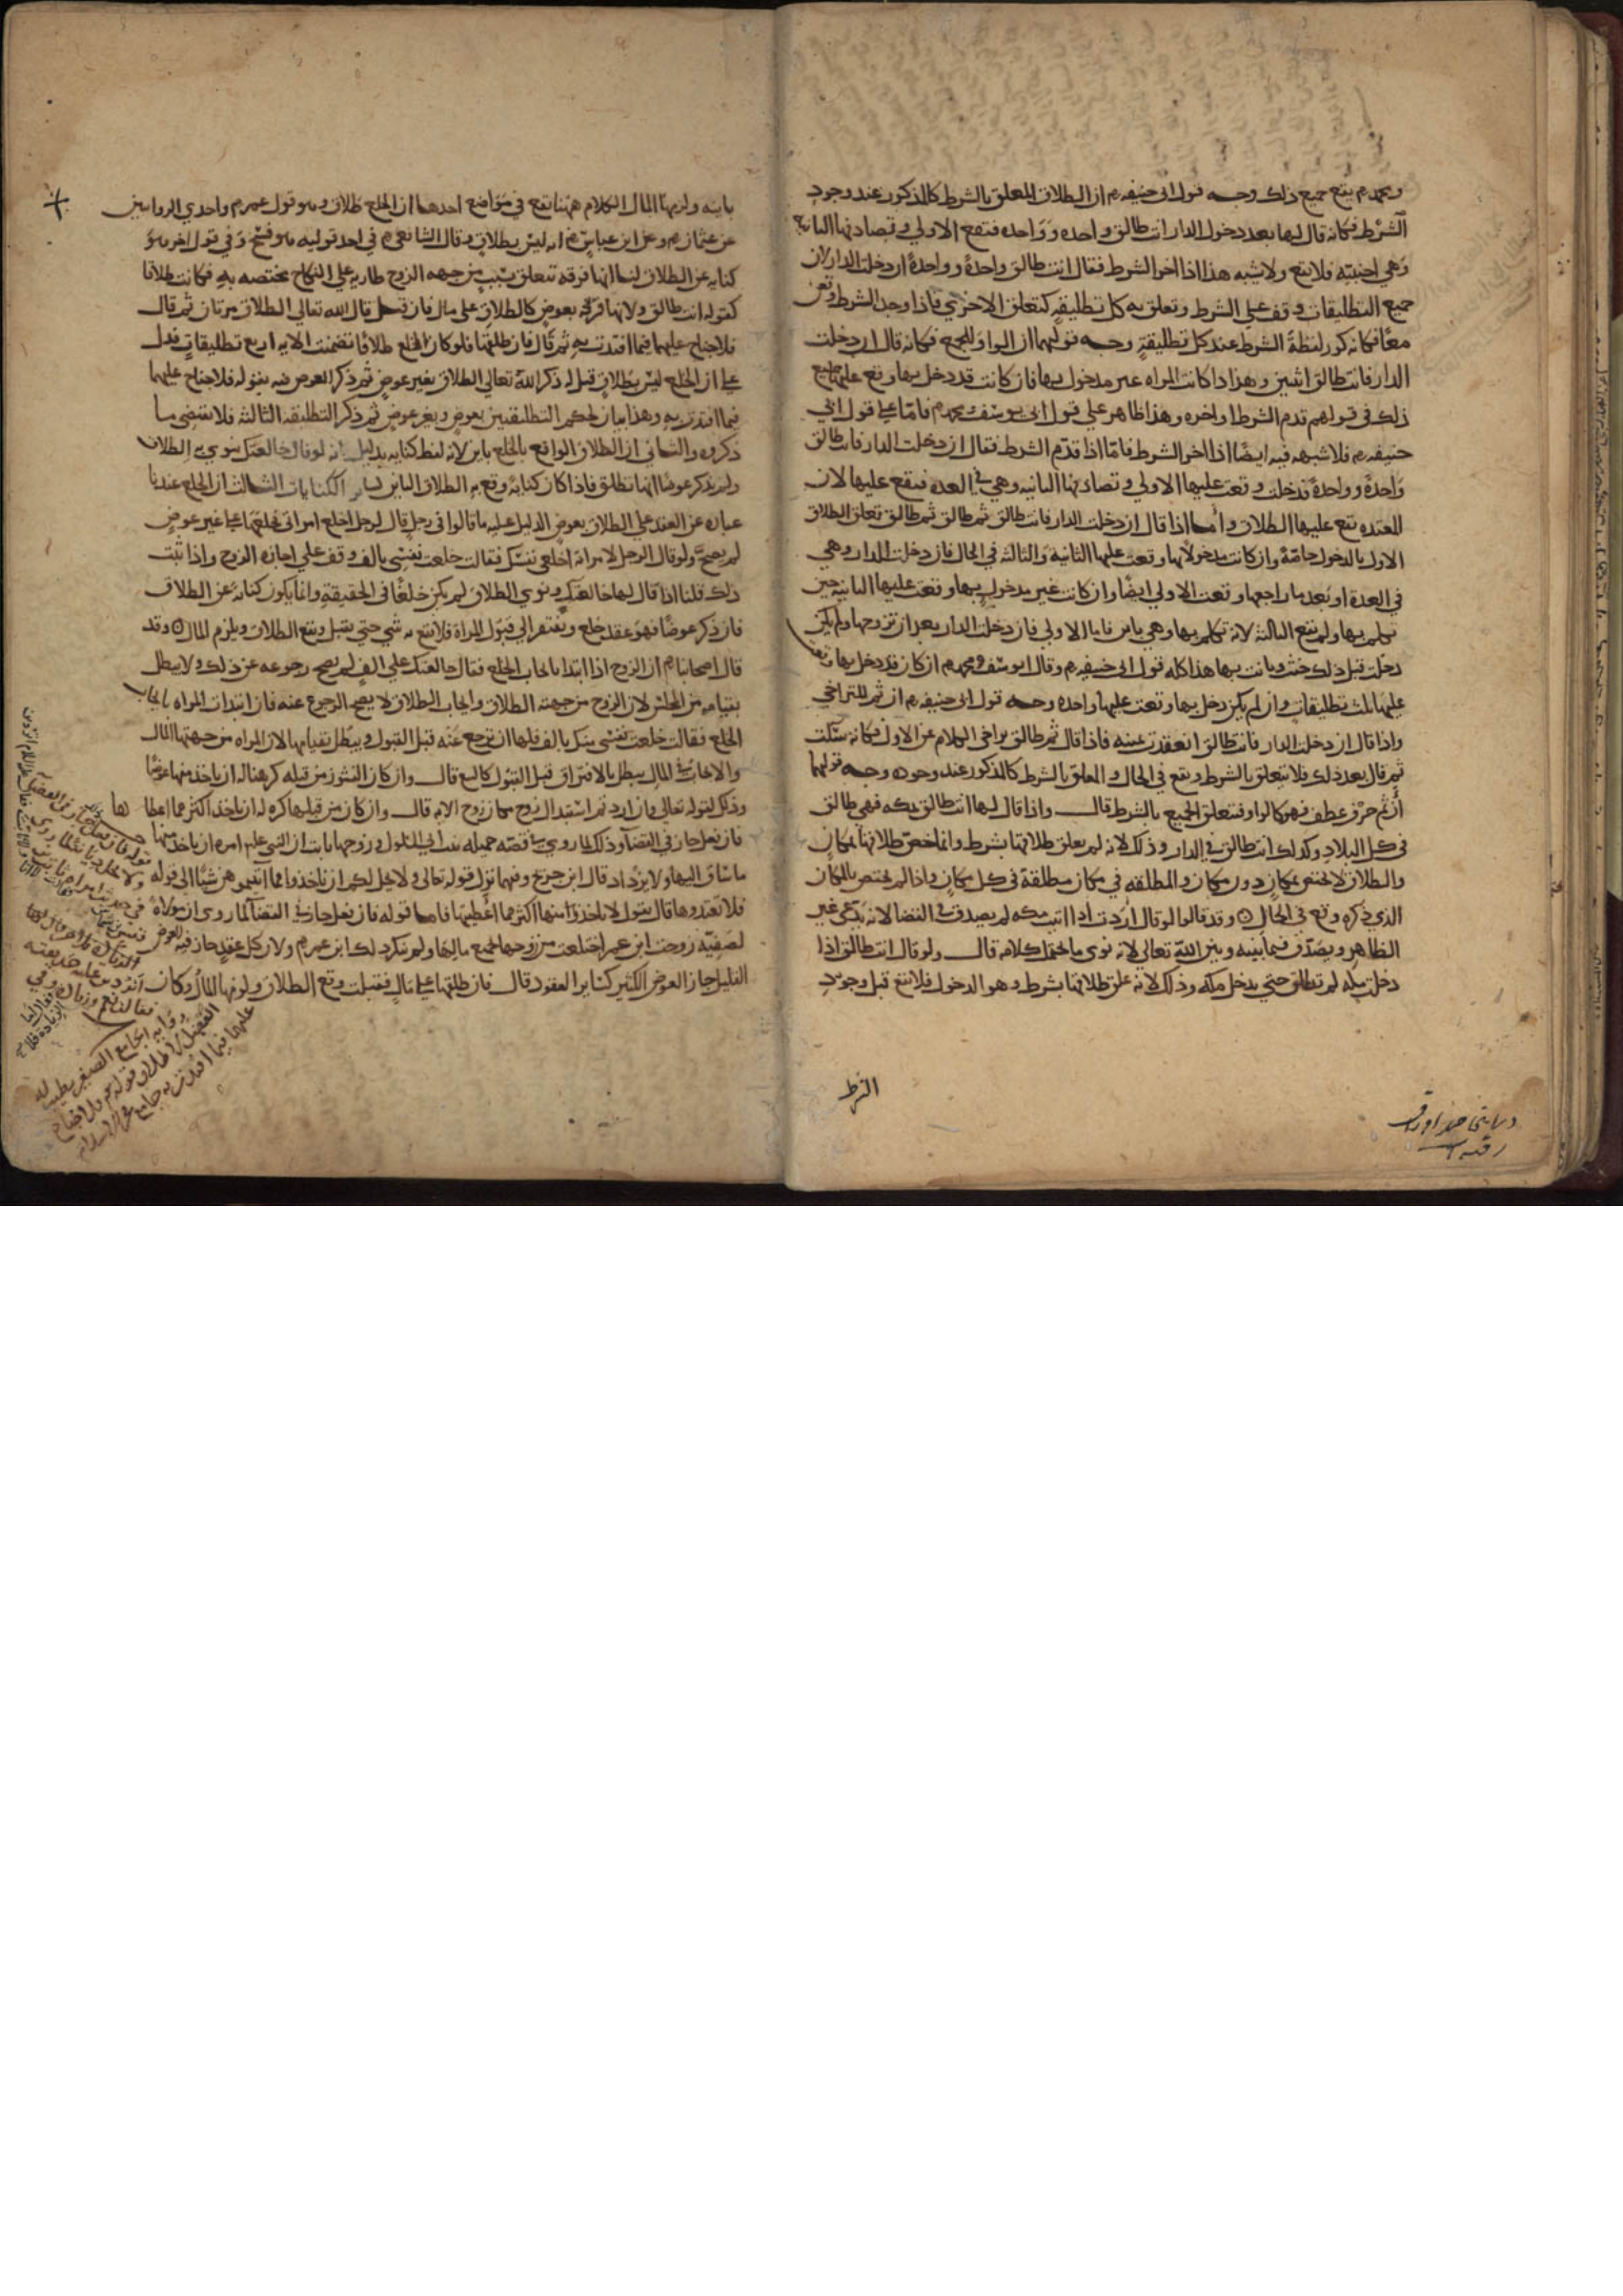 ومحمد رم يقع جميع ذلك وجه قول ابى حنيفه رم ان الطلاق المعلق بالشرط كالمذكور عند وجود
الشرط فكانه قال لها بعد دخول الدار انت طالق واحده وواحده فتقع الاولى وتصادفها الثانية
وهي اجنبيه فلا يقع ولا يشبه هذا اذا اخر الشرط فقال انت طالق واحدة وواحدة ان دخلت الدار لان
جميع التطليقات وقف على الشرط وتعلق به كل تطليقه كتعلق الاخرى فاذا وجد الشرط وقعن
معا فكانه كرر لفظة الشرط عند كل تطليقة وجه قولهما ان الواو للجمع فكانه قال ان دخلت
الدار فانت طالق اثنين وهذا اذا كانت المراه غير مدخول بها فان كانت قد دخل بها وقع عليها جميع
ذلك فى قولهم قدم الشرط او اخره وهذا ظاهر على قول ابى يوسف ومحمد رم فاما على قول ابى
حنيفه رم فلا شبهه فيه ايضا اذا اخر الشرط فاما اذا قدم الشرط فقال ان دخلت الدار فانت طالق
واحدة وواحدة فدخلت وقعت عليها الاولى وتصادفها الثانيه وهي في العده فتقع عليها لان
المعتده يقع عليها الطلاق واما اذا قال ان دخلت الدار فانت طالق ثم طالق ثم طالق تعلق الطلاق
الاول بالدخول خاصة وان كانت مدخولا بها وقعت عليها الثانية والثالثة في الحال فان دخلت الدار وهي
في العدة او بعد ما راجعها وقعت الاولى ايضا وان كانت غير مدخول بها وقعت عليها الثانيه حين
تكلم بها ولم تقع الثالثة لانه تكلم بها وهي باين فاما الاولى فان دخلت الدار بعد ان تزوجها ولم يكن
دخلت قبل ذلك حنث وبانت بها هذا كله قول ابى حنيفه رم وقال ابو يوسف ومحمد رم ان كان قد دخل بها وقعت
عليها ثلث تطليقات وان لم يكن دخل بها وقعت عليها واحده وجه قول ابى حنيفه رم ان ثم للتراخي
واذا قال ان دخلت الدار فانت طالق انعقدت يمينه فاذا قال ثم طالق تراخى الكلام عن الاول فكانه سكت
ثم قال بعد ذلك فلا يتعلق بالشرط ويقع في الحال والمعلق بالشرط كالمذكور عند وجوده وجه قولهما
ان ثم حرف عطف فهو كالواو فتعلق الجميع بالشرط قال واذا قال لها انت طالق بمكه فهى طالق
فى كل البلاد وكذلك انت طالق في الدار وذلك لانه لم يعلق طلاقها بشرط وانما خص طلاقها بمكان
والطلاق لا يختص بمكان دون مكان والمطلقه في مكان مطلقة فى كل مكان واذا لم يختص بالمكان
الذي ذكره وقع فى الحال وقد قالوا لو قال اردت اذا اتيت مكه لم يصدق في القضا لانه يدعى غير
الظاهر ويصدق فيما بينه وبين الله تعالى لانه نوى ما يحتمله كلامه قال ولو قال انت طالق اذا
دخلت مكه لم تطلق حتى تدخل مكة وذلك لانه علق طلاقها بشرط وهو الدخول فلا تقع قبل وجود
الشرط
باينه ولزمها المال الكلام ههنا يقع فى مواضع احدها ان الخلع طلاق وهو قول عمر رم واحدي الروايتين
عن عثمان رم وعن ابن عباس رم انه ليس بطلاق وقال الشافعى رم في احد قوليه هو فسخ وفي قول اخر هو
كناية عن الطلاق لنا انها فرقه تتعلق بسبب من جهه الزوج طاريه على النكاح مختصه به فكانت طلاقا
كقوله انت طالق ولانها فرقة بعوض كالطلاق على مال فان قيل قال الله تعالى الطلاق مرتان ثم قال
فلا جناح عليهما فيما افتدت به ثم قال فان طلقها فلو كان الخلع طلاقا تضمنت الايه اربع تطليقات فدل
على ان الخلع ليس بطلاق قيل له ذكر الله تعالى الطلاق بغير عوض ثم ذكر العوض فيه بقوله فلا جناح عليهما
فيما افتدت به وهذا بيان لحكم التطليقتين بعوض وبغير عوض ثم ذكر التطليقه الثالثة فلا يقتضى ما
ذكروه والثاني ان الطلاق الواقع بالخلع باين لانه لفظ كنايه بدليل انه لو قال خالعتك ينوي به الطلاق
ولم يذكر عوضا انها تطلق فاذا كان كناية وقع به الطلاق الباين كساير الكنايات الثالث ان الخلع عندنا
عباره عن العقد على الطلاق بعوض الدليل عليه ما قالوا فى رجل قال لرجل اخلع امراتى فخلعها على غير عوض
لم يصح ولو قال الرجل لامراته اخلعى نفسك فقالت خلعت نفسى بالف وقف على اجازه الزوج واذا ثبت
ذلك قلنا اذا قال لها خالعتك ونوى الطلاق لم يكن خلعا فى الحقيقة وانما يكون كناية عن الطلاق
فان ذكر عوضا فهو عقد خلع ويفتقر الى قبول المراة فلا يقع به شى حتى يقبل ويقع الطلاق ويلزم المال وقد
قال اصحابنا رم ان الزوج اذا ابتدا بايجاب الخلع فقال خالعتك على الف لم يصح رجوعه عن ذلك ولا يبطل
بقيامه من المجلس لان الزوج من جهته الطلاق وايجاب الطلاق لا يصح الرجوع عنه فان ابتدات المراه بايجاب
الخلع فقالت خلعت نفسى منك بالف فلها ان ترجع عنه قبل القبول ويبطل بقيامها لان المراه من جهتها المال
والايجاب في المال يبطل بالافتراق قبل القبول كالبيع قال وان كان النشوز من قبله كرهنا له ان ياخذ منها عوضا
وذلك لقوله تعالى وان اردتم استبدال زوج مكان زوج الايه قال وان كان من قبلها كره له ان ياخذ اكثر مما اعطاها
فان فعل جاز في القضا وذلك لما روي في قصه جميله بنت ابي السلول وزوجها ثابت ان النبى علم امره ان ياخذ منها
ما ساق اليها ولا يزداد قال ابن جريج وفيهما نزل قوله تعالى ولا يحل لكم ان تاخذوا مما اتيتموهن شيئا الى قوله
فلا تعتدوها قال يقول لا تاخذوا منها اكثر مما اعطيتها فاما قوله فان فعل جاز في القضا لما روى ان مولاة
لصفية زوجت ابن عمر اختلعت من زوجها بجميع مالها ولم ينكر ذلك ابن عمر رم ولان كل عقد جاز فيه العوض
القليل جاز العوض الكثير كساير العقود قال فان طلقها على مال فقبلت وقع الطلاق ولزمها المال وكان